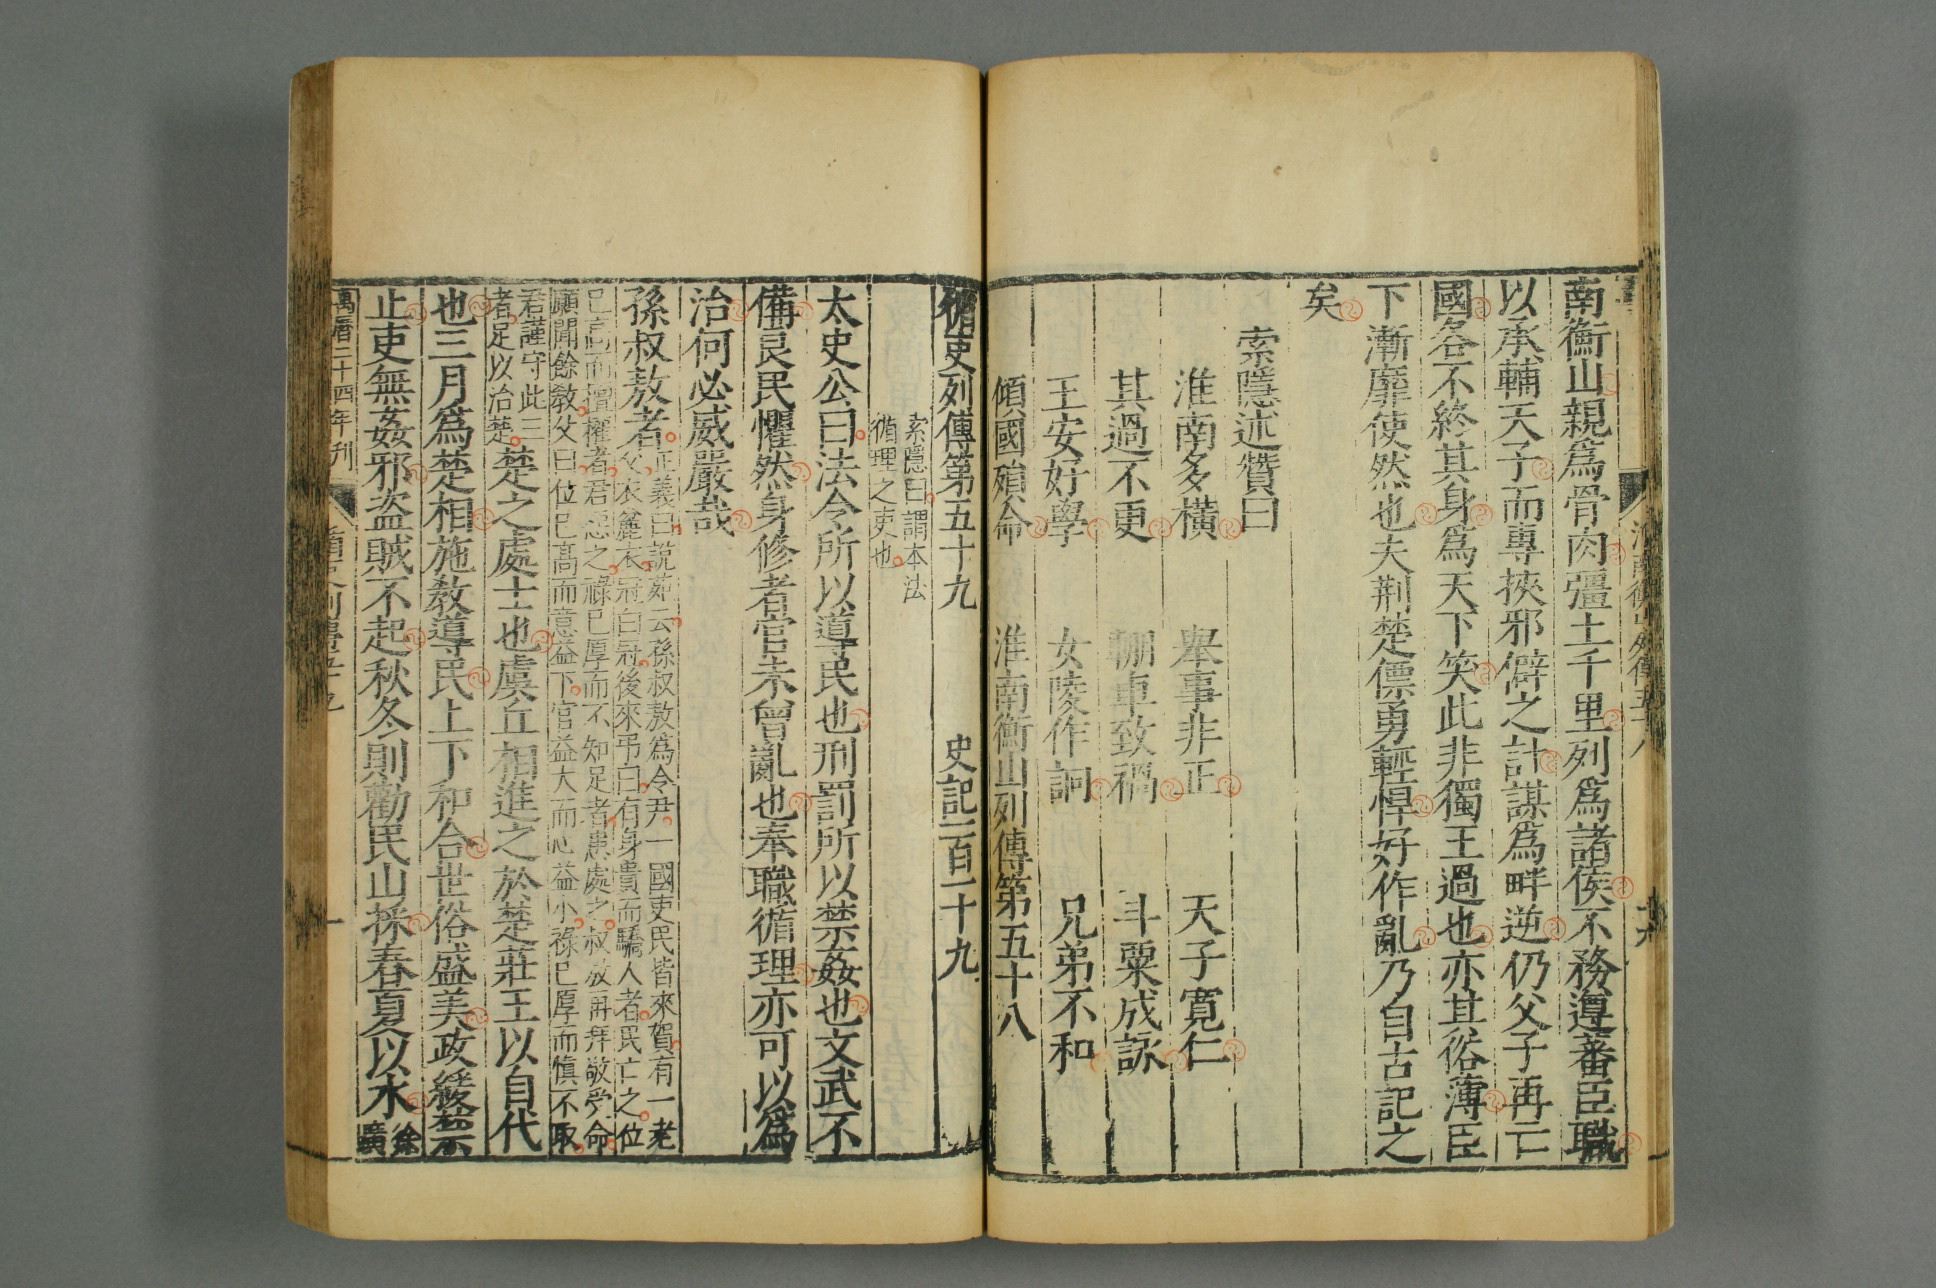 南衡山親爲骨肉彊土千里列爲諸侯不務遵蕃臣職
以承輔天子而專挾邪僻之計謀爲畔逆仍父子再亡
國各不終其身爲天下笑此非獨王過也亦其俗薄臣
下漸靡使然也夫荆楚僄勇輕悍好作亂乃自古記之
矣
索隱述贊曰
淮南多横 舉事非正 天子寛仁
其過不更 輣車致禍 斗粟成詠
王安好學 女陵作詗 兄弟不和
傾國殞命 淮南衡山列傳第五十八
循吏列傳第五十九 史記一百一十九
索隱曰謂本法
循理之吏也
太史公曰法令所以導民也刑罰所以禁姦也文武不
備良民懼然身修者官未曾亂也奉職循理亦可以爲
治何必威嚴哉
孫叔敖者
正義曰說苑云孫叔敖爲令尹一國吏民皆來賀有一老
父衣麤衣冠白冠後來弔曰有身貴而驕人者民亡之位
已高而擅權者君惡之祿已厚而不知足者患處之叔敖再拜敬受命
願聞餘敎父曰位已高而意益下官益大而心益小祿已厚而愼不取
君謹守此三
者足以治楚
楚之處士也虞丘相進之於楚莊王以自代
也三月爲楚相施敎導民上下和合世俗盛美政緩禁
止吏無姦邪盗賊不起秋冬則勸民山採春夏以水
徐
廣
萬曆二十四年刊
循吏列傳五十九
一
淮南衡山列傳五十八